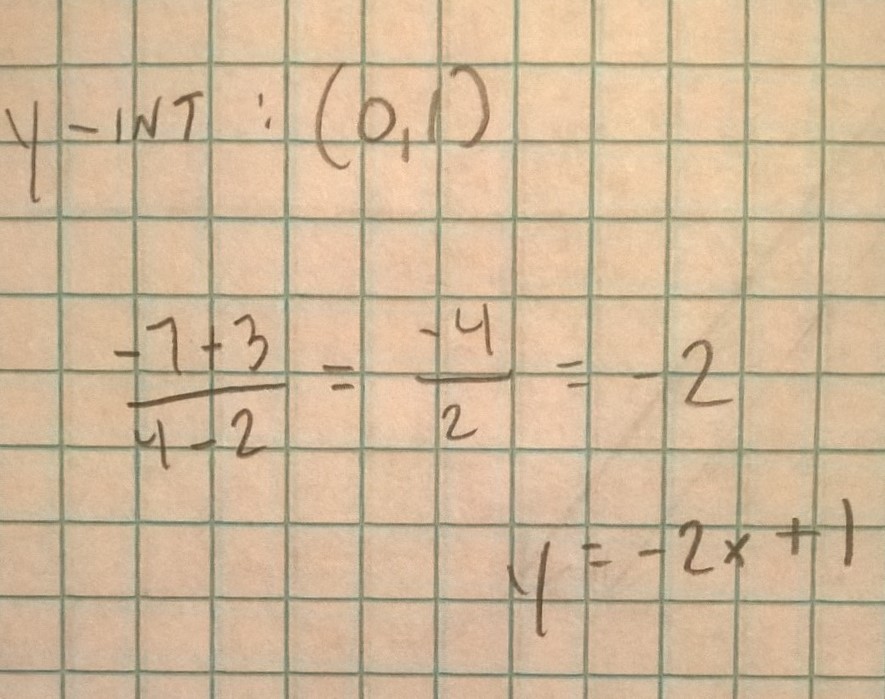 y-INT : (0,1)
-7+3/4-2 = -4/2 = -2
y = -2x + 1